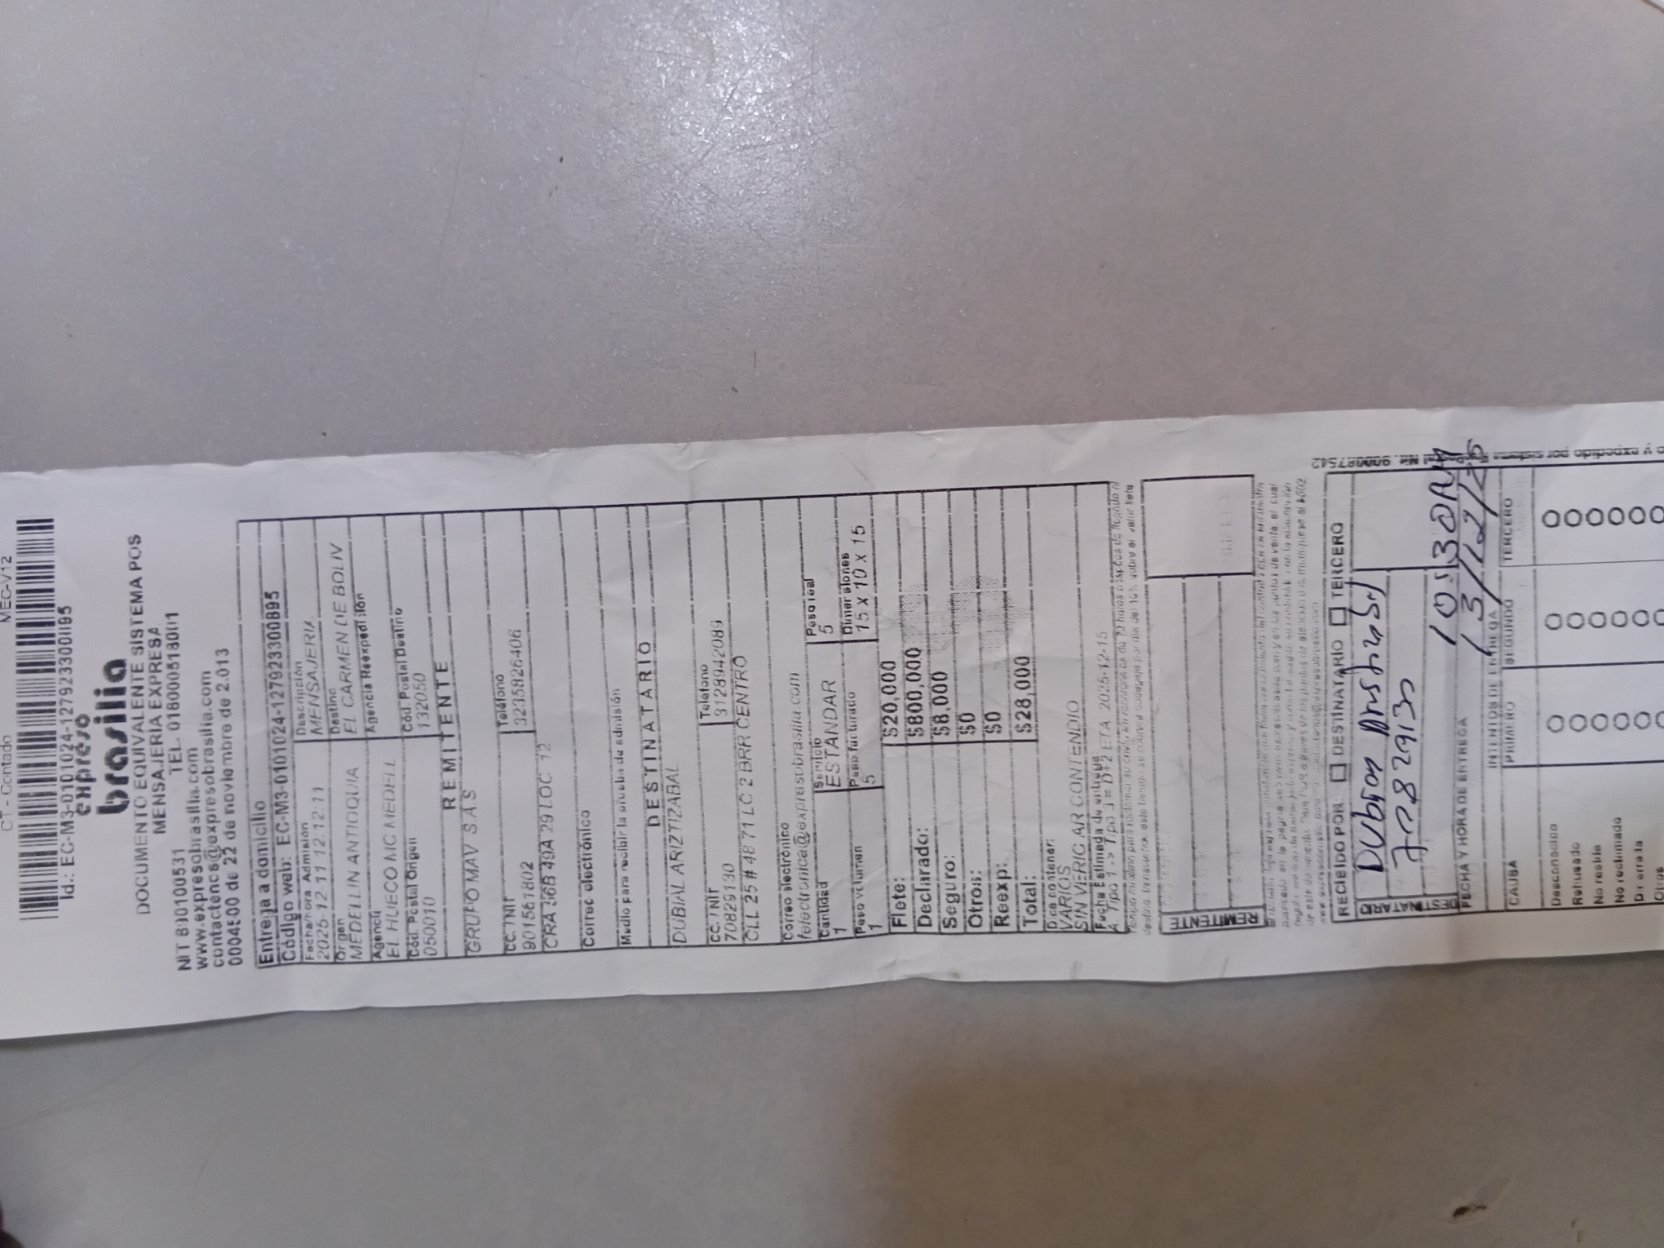 CT - Contado MEC-V12
Id.: EC-M3-0101024-12792330095
expreso
brasilia
DOCUMENTO EQUIVALENTE SISTEMA POS
MENSAJERIA EXPRESA
NIT 890100531 TEL. 018000518001
www.expresobrasilia.com
contactenos@expresobrasilia.com
de 22 de noviembre de 2.013
Entrega a domicilio
Código web: EC-M3-0101024-12792330095
Fecha/hora Admisión Descripción
2025-12-11 12:12:11 MENSAJERIA
Origen Destino
MEDELLIN ANTIOQUIA EL CARMEN DE BOLIV
Agencia Agencia Reexpedición
EL HUECO MC MEDELL
Cód. Postal Origen Cód Postal Destino
050010 132050
REMITENTE
GRUPO MAV S.A.S
CC. / NIT Teléfono
901561802 3235826406
CRA 56B 49A 29 LOC 12
Correo electrónico
Medio para recibir la prueba de admisión
DESTINATARIO
DUBIAL ARIZTIZABAL
CC. / NIT Teléfono
70829130 3128942089
CLL 25 # 48 71 LC 2 BRR CENTRO
Correo electrónico
felectronica@expresobrasilia.com
Cantidad Servicio Peso real
1 ESTANDAR 5
Peso volumen Peso facturado Dimensiones
1 5 15 X 10 X 15
Flete: $20,000
Declarado: $800,000
Seguro: $8,000
Otros: $0
Reexp: $0
Total: $28,000
Dice contener:
VARIOS
SIN VERIFICAR CONTENIDO
Fecha Estimada de entrega
A Tipo 1 -> Tipo J = D+2 ETA 2025-12-15
REMITENTE
RECIBIDO POR: DESTINATARIO TERCERO
DESTINATARIO
70829130
FECHA Y HORA DE ENTREGA 10:30AM
13/12/25
INTENTOS DE ENTREGA
CAUSA PRIMERO SEGUNDO TERCERO
Desconocido
Rehusado
No reside
No reclamado
Dir errada
Otros
y expedido por sistema Nit. 900087542